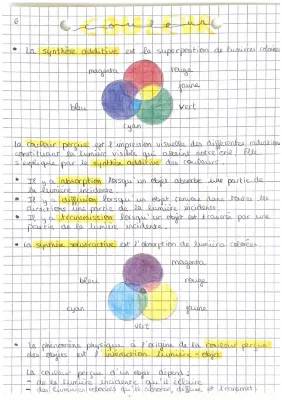 6
couleur
• La synthèse additive est la superposition de lumières colorées
magenta
rouge
jaune
bleu
vert
cyan
La couleur perçue est l'impression visuelle des différentes radiations
constituant la lumière visible qui arrive entre oeil. Elle
s'explique par la synthèse additive des couleurs.
• Il y a absorption lorsqu'un objet absorbe une partie de
la lumière incidente
• Il y a diffusion lorsqu'un objet renvoie dans toutes les
directions une partie de la lumière incidente
• Il y a transmission lorsqu'un objet est traversé par une
partie de la lumière incidente.
• La synthèse soustractive est l'absorption de lumière colorées
magenta
bleu
rouge
cyan
jaune
vert
• Le phénomène physique à l'origine de la couleur perçue
des objets est l'interaction lumière - objet
La couleur perçue d'un objet dépend :
- de la lumière incidente qui l'éclaire
- des lumières colorées qu'il absorbe, diffuse et transmet